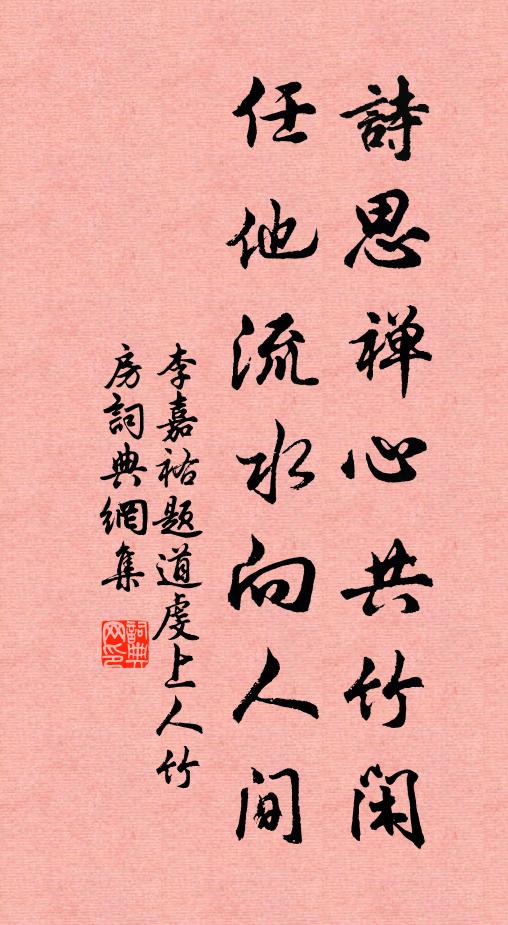 詩思禅心共竹闲
任他流水向人间
李嘉祐题道虔上人竹
房詞典網集
詞典
网印